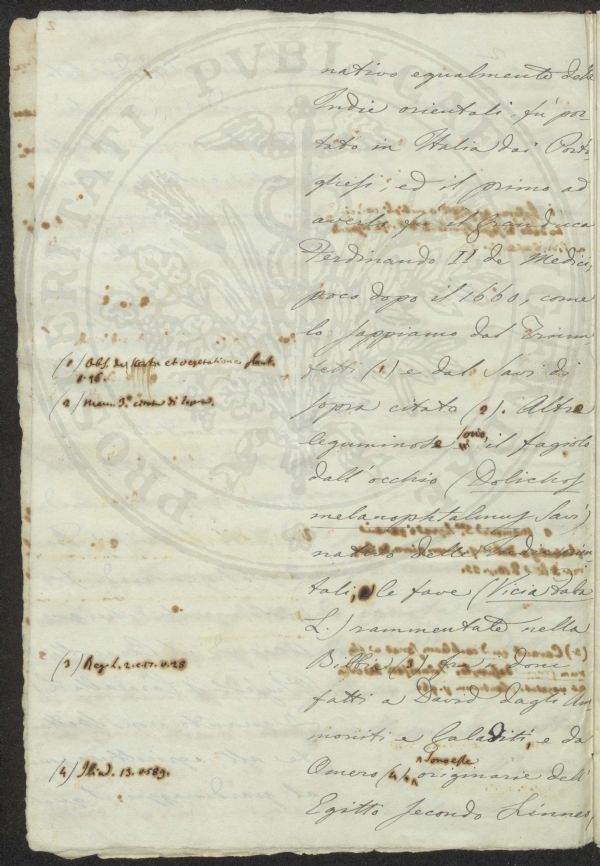 2
nativo egualmente delle
Indie orientali, fù por-
tato in Italia dai Porto-
ghesi; ed il primo ad
averlo fu il Granduca
Ferdinando II de Medici,
poco dopo il 1660, come
lo sappiamo dal Trium
fetti (1) e dal Savi di
sopra citato (2). Altre
leguminose sono, il fagiolo
dall'occhio (Dolichos
melanophtalmus Savi)
nativo delle Indie orien
tali, e le fave (Vicia Faba
L.) rammentate nella
Bibbia (3) fra i doni
fatti a David dagli Am
moniti e Galaditi, e da
Omero (4), sono esse originarie dell'
Egitto secondo Linneo,
(1) Obs. de ortu et vegetatione plant.
p. 76.
(2) Mem. 3.a citata di sopra.
(3) Reg. L. 2. c. 17. v. 28
(4) Iliad. 13. v. 589.
PROSPERITATI PVBLICAE